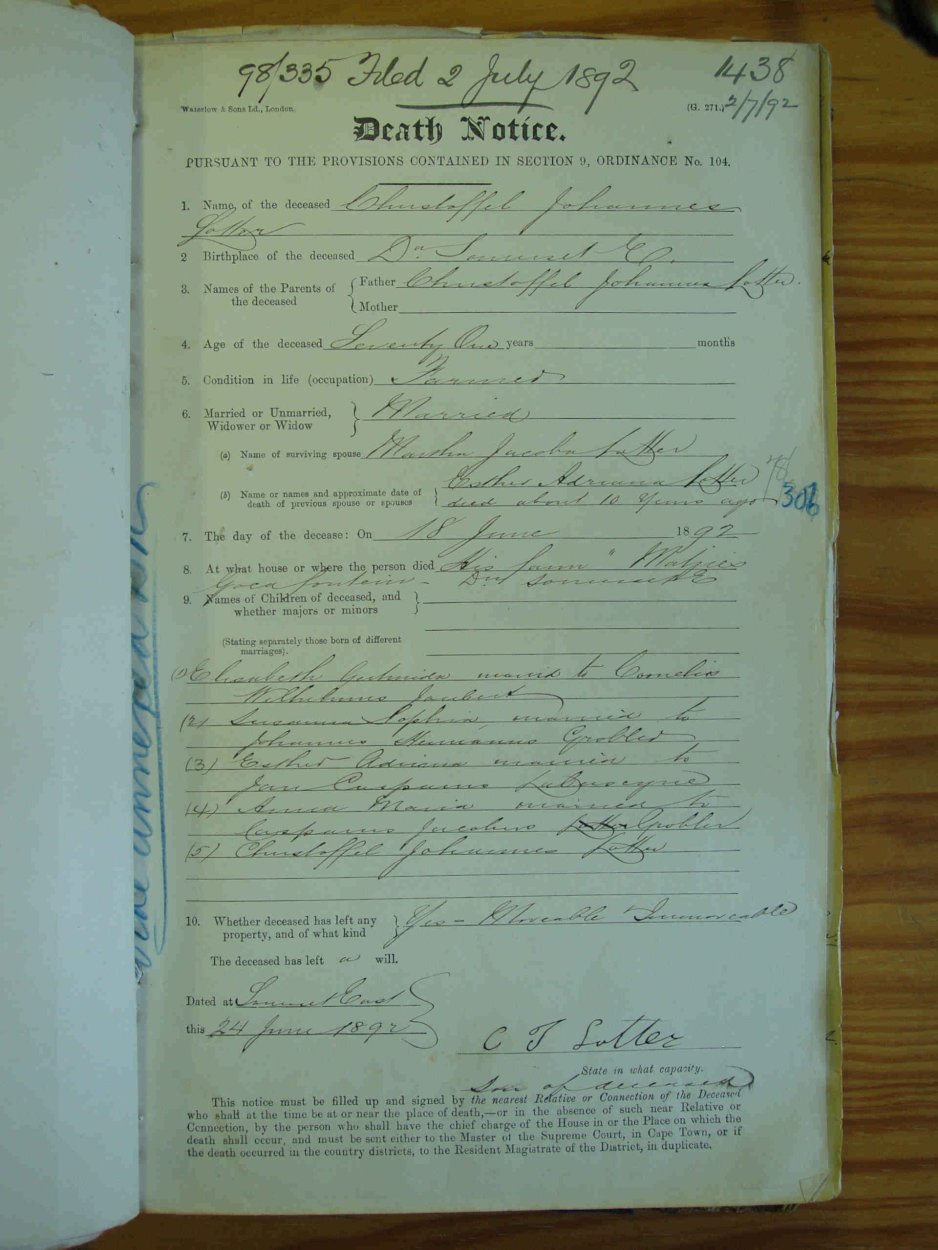 98/335 Filed 2 July 1892 1438
Waterlow & Sons Ld., London. (G. 271.) 2/7/92
Death Notice.
PURSUANT TO THE PROVISIONS CONTAINED IN SECTION 9, ORDINANCE No. 104.
1. Name, of the deceased Christoffel Johannes
Lotter
2 Birthplace of the deceased Dn. Somerset E.
3. Names of the Parents of the deceased { Father Christoffel Johannes Lotter.
{ Mother
4. Age of the deceased Seventy One years months
5. Condition in life (occupation) Farmer
6. Married or Unmarried, Widower or Widow } Married
(a) Name of surviving spouse Martha Jacoba Lotter
Esther Adriana Lotter 78/
(b) Name or names and approximate date of death of previous spouse or spouses } died about 10 Years ago 306
7. The day of the decease: On 18 June 1892
8. At what house or where the person died His farm "
fontein - Dn Somerset E
9. Names of Children of deceased, and whether majors or minors }
(Stating separately those born of different marriages).
(1) Elisabeth married to Cornelis
Wilhelmus Joubert
(2) Susanna Sophia, married to
Johannes Hermanus Grobler
(3) Esther Adriana married to
Jan Casparus Labuscagne
(4) Anna Maria married to
Casparus Jacobus Lotter Grobler
(5) Christoffel Johannes Lotter
10. Whether deceased has left any property, and of what kind } Yes - Moveable & Immoveable
The deceased has left a will.
Dated at Somerset East
this 24 June 1892
C J Lotter
State in what capacity.
Son of deceased
This notice must be filled up and signed by the nearest Relative or Connection of the Deceased
who shall at the time be at or near the place of death,—or in the absence of such near Relative or
Connection, by the person who shall have the chief charge of the House in or the Place on which the
death shall occur, and must be sent either to the Master of the Supreme Court, in Cape Town, or if
the death occurred in the country districts, to the Resident Magistrate of the District, in duplicate.